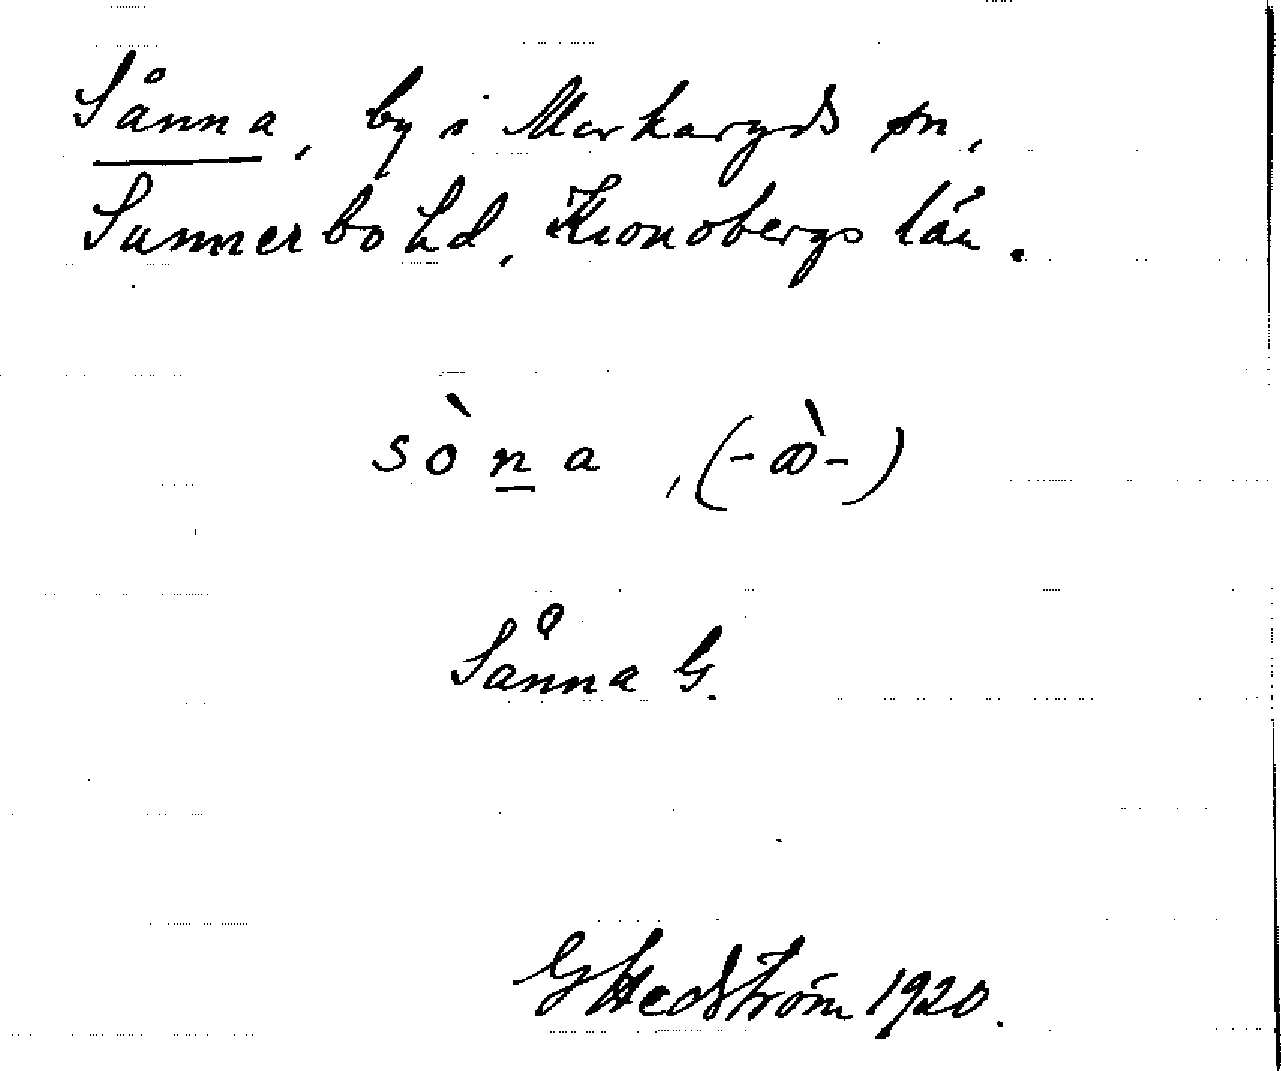 Sånna, by i Markaryds sn,
Sunnerbo hd, Kronobergs län.
sòna, (-ꝏ̀-)
Sånna G.
G Hedström 1920.